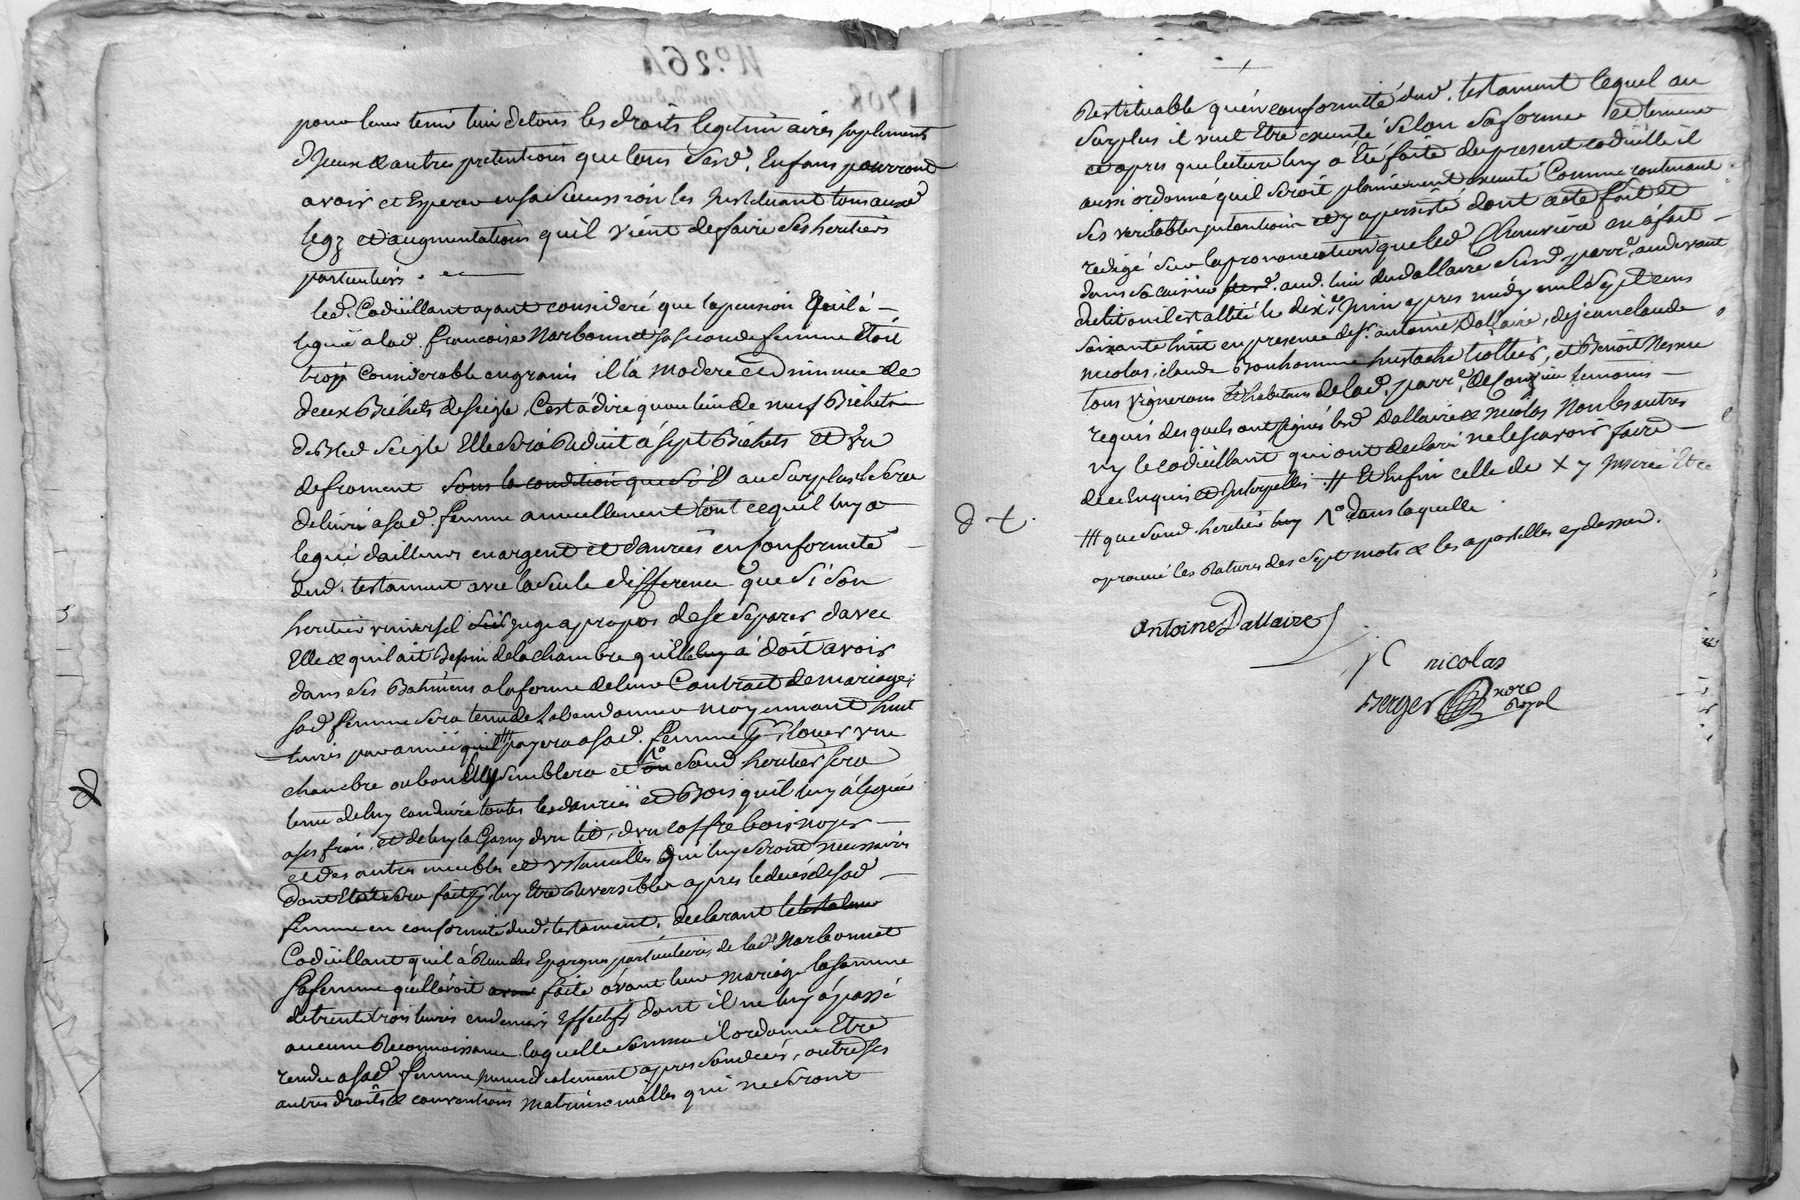 pour leur tenir lieu de tous les droits legitimaires suplements
d'yceux & autres pretentions que leurs sesd. Enfans pourront
avoir et Esperer en sa succession les Instituant tous auxd
legz et augmentations qu'il vient de faire ses heritiers
particuliers.
led. Codicillant ayant consideré que la pension qu'il à
legué a lad. francoise Narbonnet sa seconde femme Etoit
trop Considerable en grains il l'a moderé et diminué de
deux Bichets de seigle, C'est a dire qu'au lieu de neuf Bichets
de Bled seigle Elle sera Reduit à sept Bichets et d'un
de froment sous la condition que s'il au surplus il sera
delivré a sad. femme annuellement tout ce qu'il luy a
legué d'ailleurs en argent et danrées en Conformité
dud. testament avec la seule difference que si son
heritier universel juge a propos de se separer d'avec
Elle & qu'il ait Besoin de la chambre qu'Elle doit avoir
dans ses Batimens a la forme de leur Contract de mariage,
sad femme sera tenue de l'abandonner moyennant huit
livres par année qu'il payera a sad. femme pr. louer une
chambre ou bon luy semblera et sond heritier sera
tenu de luy conduire toutes les danrées et Bois qu'il luy à legué
a ses frais, et de luy la Garny d'un lit, d'un coffre bois noyer
et des autres meubles et ustancilles qui luy seront necessaires
dont Etat sera fait pr. luy Etre Reversibles apres le decès de sad
femme en conformité dud. testament, declarant le testateur
Codicillant qu'il à Reçu des Epargnes particulieres de lad. Narbonnet
sa femme qu'elle avoit faite avant leur mariage la somme
de trente trois livres en deniers Effectifs dont il ne luy à passé
aucune Reconnoissance laquelle somme il ordonne Etre
rendue a sad femme immediatement apres son decés, outre ses
autres droits & conventions matrimonialles qui ne seront
Restituable qu'en conformité dud. testament lequel au
surplus il veut Etre executé selon sa forme et teneur
et apres que lecture luy à Eté faite du present codicille il
aussi ordonné qu'il seroit pleinement executé Comme contenant
ses veritables intentions et y a persisté dont acte fait et
redigé sur la prononciation que led Chauviere en à fait
dans sa cuisine aud. lieu du dallaire susd parr. au devant
du lit ou il est alité le dixe. Juin apres midy mil sept cens
soixante huit en presence de sr. antoine Dallaire, de jean claude
nicolas, claude Bonhomme hustache trollier, et Benoit
tous vignerons et habitans de lad. parre. de temoins
requis desquels ont signés led Dallaire & nicolas Non les autres
ny le codicillant qui ont declaré ne le sçavoir faire
de ce Enquis et Interpellés. # Et Enfin celle de X y
### que sond heritier luy 1o dans laquelle
d t.
aprouvé les Ratures des sept mots & les apostilles cy dessus.
antoine Dallaire
J C nicolas
Berger nore Royal